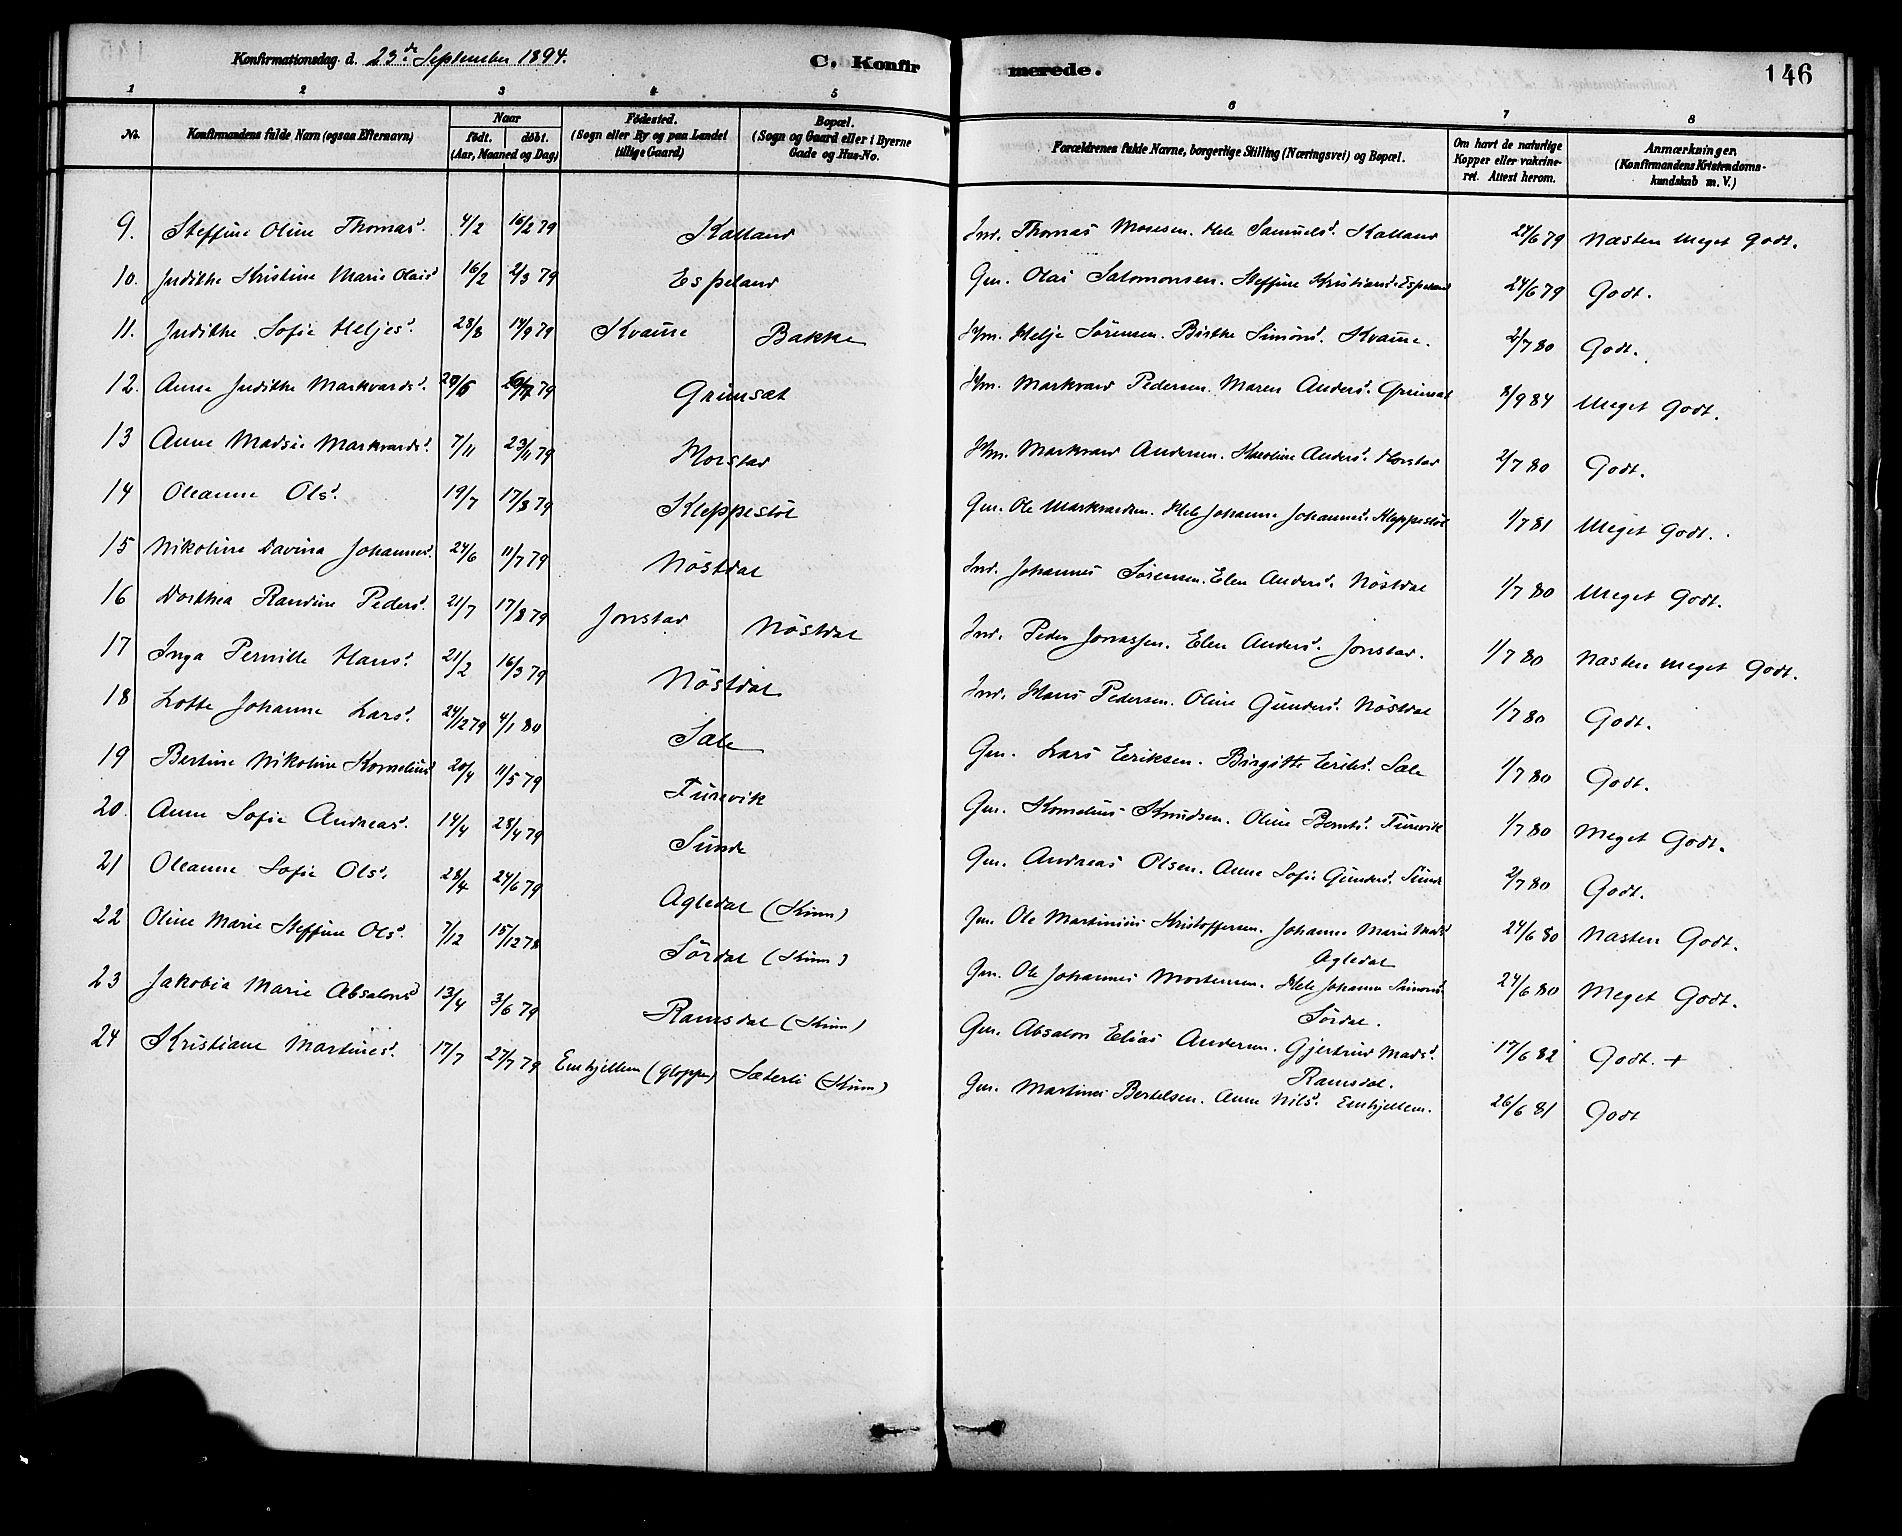 Konfirmationsdag d. 23de September 1894. C. Konfirmerede. 146
1 2 3 4 5 6 7 8
No. Konfirmandens fulde Navn (ogsaa Efternavn) Naar født. døbt. (Aar, Maaned og Dag) Fødested. (Sogn eller By og paa Landet tillige Gaard) Bopæl. (Sogn og Gaard eller i Byerne Gade og Hus-No. Forældrenes fulde Navne, borgerlige Stilling (Næringsvei) og Bopæl. Om havt de naturlige Kopper eller vakcineret. Attest herom. Anmærkninger. (Konfirmandens Kristendomskundskab m. V.)
9. Steffine Oline Thomasd. 4/2 16/2 79 Kalland Ind. Thomas Mosesen. Hele Samuelsd. Kalland 28/6 79 Næsten Meget Godt.
10. Judithe Kristine Marie Olaisd 16/2 2/3 79 Espeland Gm. Olai Salomonsen. Steffine Kristiansd. Espeland 24/6 79 Godt.
11. Judithe Sofie Heljesd. 28/8 14/9 79 Kvamme Bakke Hm. Helje Sørensen. Birthe Simonsd. Kvamme. 2/7 80 Godt.
12. Anne Judithe Markvardsd. 29/6 79 Grimset Hm. Markvard Pedersen. Maren Andersd. Grimset 8/9 84 Meget Godt.
13 Anne Madsie Markvardsd. 7/11 23/11 79 Horstad Hm. Markvard Andersen. Karoline Andersd. Horstad 2/7 80 Godt.
14 Oleanne Olsd. 19/7 17/8 79 Kleppestøl Gm. Ole Markvardsen. Hele Johanne Johannesd. Kleppestøl 1/7 81 Meget Godt.
15 Nikoline Davina Johannesd. 24/6 11/7 79 Nøstdal Ind. Johannes Sørensen. Elen Andersd. Nøstdal 1/7 80 Meget Godt.
16 Dorthea Randine Pedersd. 21/7 17/8 79 Jonstad Nøstdal Ind. Peder Jonassen. Elen Andersd. Jonstad. 1/7 80 Næsten Meget Godt.
17 Inga Pernille Hansd. 21/2 16/3 79 Nøstdal Ind. Hans Pedersen. Oline Gundersd. Nøstdal 1/7 80 Godt.
18 Lotte Johanne Larsd. 24/12 79 4/1 80 Sale Gm. Lars Eeriksen. Birgitte Eeriksd. Sale 1/7 80 Godt.
19 Bertine Nikoline Korneliusd 20/4 11/5 79 Furevik Gm. Kornelius Knudsen. Oline Berntsd. Furevik 1/7 80 Meget Godt.
20. Anne Sofie Andreasd. 14/4 28/4 79 Sunde Gm. Andreas Olsen. Anne Sofie Gundersd. Sunde 2/7 80 Godt.
21 Oleanne Sofie Olsd. 28/4 24/6 79 Agledal (Kinn) Gm. Ole Martinius Kristoffersen. Johanne Marie Madsd. Agledal 24/6 80 Næsten Godt.
22 Oline Marie Steffine Olsd. 7/12 15/12 78 Sørdal (Kinn) Gm. Ole Johannes Mortensen. Hele Johanne Simonsd. Sørdal. 24/6 80 Meget Godt.
23 Jakobia Marie Absalonsd 13/4 3/6 79 Ramsdal (Kinn) Gm. Absalon Elias Andersen. Gjertrud Madsd. Ramsdal. 17/6 82 Godt. +
24 Kristiane Martinesd. 17/7 27/7 79 Emhjellem (Gloppen) Sæterli (Kinn) Gm. Martines Bertelsen. Anne Nilsd. Emhjellem. 26/6 81 Godt